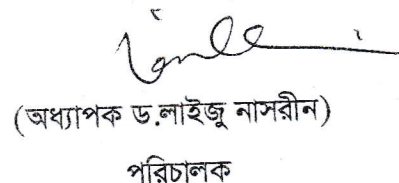 (অধ্যাপক ড.লাইজু নাসরীন)
পরিচালক